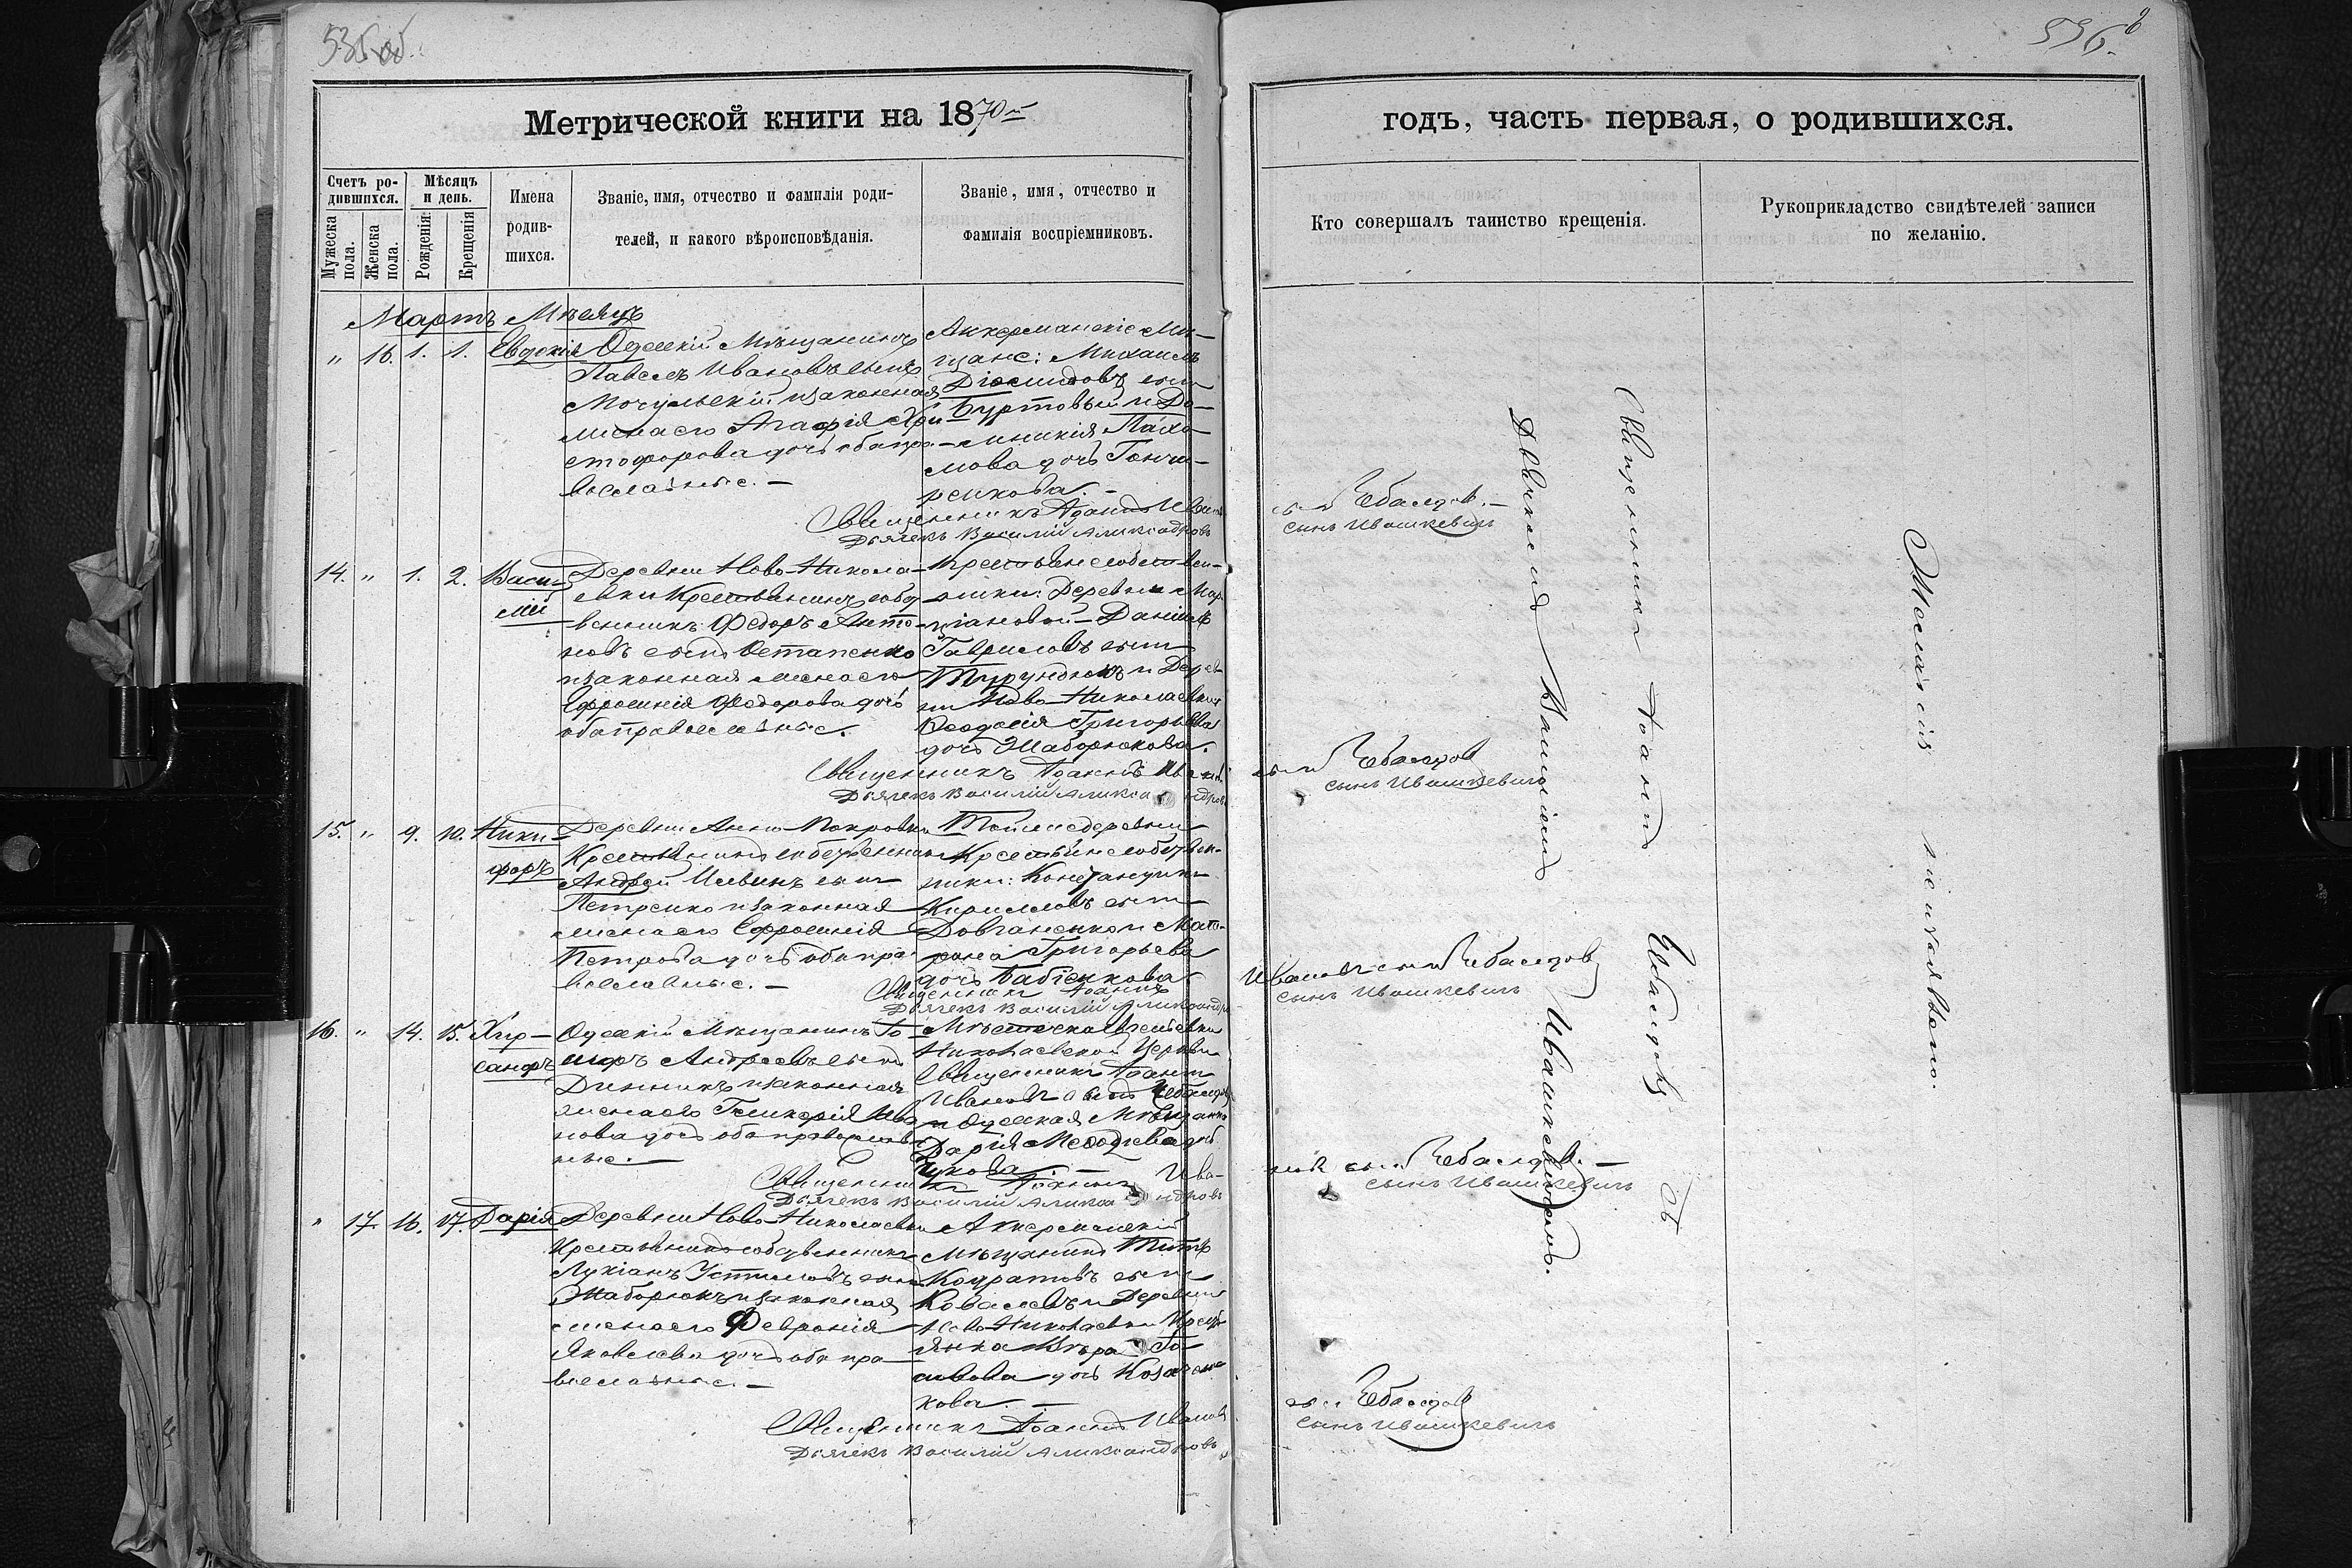 535 об.
536
Метрической книги на 1870й
годъ, часть первая, о родившихся.
Счетъ ро-
дившихся.
Мѣсяцъ
и день.
Мужеска
пола.
Женска
пола.
Рожденія:
Крещенія
Имена
родив-
шихся.
Званіе, имя, отчество и фамилія роди-
телей, и какого вѣроисповѣданія.
Званіе, имя, отчество и
фамилія воспріемниковъ.
Кто совершалъ таинство крещенія.
Рукоприкладство свидѣтелей записи
по желанію.
Мартъ Мѣсяцъ
" 16. 1. 1. Евдокія
Одесскій Мѣщанинъ
Павелъ Ивановъ сынъ
Мочульскій и законная
жена его Агафія Хри-
стофорова дочь оба пра-
вославные. —
Аккерманскіе Мѣ-
щане: Михаилъ
Діомидовъ сынъ
Буртовый и До-
мникія Пахо-
мова дочь Гонча-
ренкова. —
Священникъ Іоаннъ Иванов
сынъ Чебаловъ. —
Дьячекъ Василій Александровъ
сынъ Ивашкевичъ
14. " 1. 2. Васи-
лій
Деревни Ново-Никола-
евки Крестьянинъ собст
венникъ Федоръ Анто-
новъ сынъ Остапенко
и законная жена его
Ефросинія Федорова дочь
оба православные.
Крестьяне собствен-
ники: Деревни Мар
ціановой — Даніилъ
Гавриловъ сынъ
Турунджикъ и Дерев-
ни Ново-Николаевки
Феодосія Григорьева
дочь Жаборюкова.
Священникъ Іоаннъ Иванов
сынъ Чебаловъ
Дьячекъ Василій Александровъ
сынъ Ивашкевичъ
15. " 9. 10. Ники-
форъ
Деревни Анно-Покровки
Крестьянинъ собственникъ
Андрей Иевинъ сынъ
Петренко и законная
жена его Ефросинія
Петрова дочь оба пра-
вославные. —
Той же деревни
Крестьяне собствен-
ники: Константинъ
Кирилловъ сынъ
Довганенко и Мат-
рона Григорьева
дочь Бабіенкова
Священникъ Іоаннъ
Ивановъ сынъ Чебаловъ
Дьячекъ Василій Александровъ
сынъ Ивашкевичъ
16. " 14. 15. Хри-
санфъ
Одесскій Мѣщанинъ Іо-
сифъ Андреевъ сынъ
Динникъ и законная
жена его Гликерія Ива
нова дочь оба православ
ные. —
Николаевской Церкви
Священникъ Іоаннъ
Ивановъ сынъ Чебаловъ
и Одесская Мѣщанка
Дарія Меѳодіева дочь
Чукова. —
Священникъ Іоаннъ Ива-
новъ сынъ Чебаловъ. —
Дьячекъ Василій Александровъ
сынъ Ивашкевичъ
" 17. 16. 17. Дарія
Деревни Ново-Николаевки
Крестьянинъ собственникъ
Лукіанъ Устиновъ сынъ
Жаборюкъ и законная
жена его Февронія
Яковлева дочь оба пра
вославные. —
Аккерманскій
Мѣщанинъ Титъ
Кодратовъ сынъ
Ковалевъ и Деревни
Ново-Николаевки Крест
янка Вѣра Іо-
сифова дочь Козачен
кова. —
Священникъ Іоаннъ Ивановъ
сынъ Чебаловъ
Дьячекъ Василій Александровъ
сынъ Ивашкевичъ
Священникъ Іоаннъ Чебаловъ съ
Дьячкомъ Василіемъ Ивашкевичемъ.
Желанія не изъявлено.